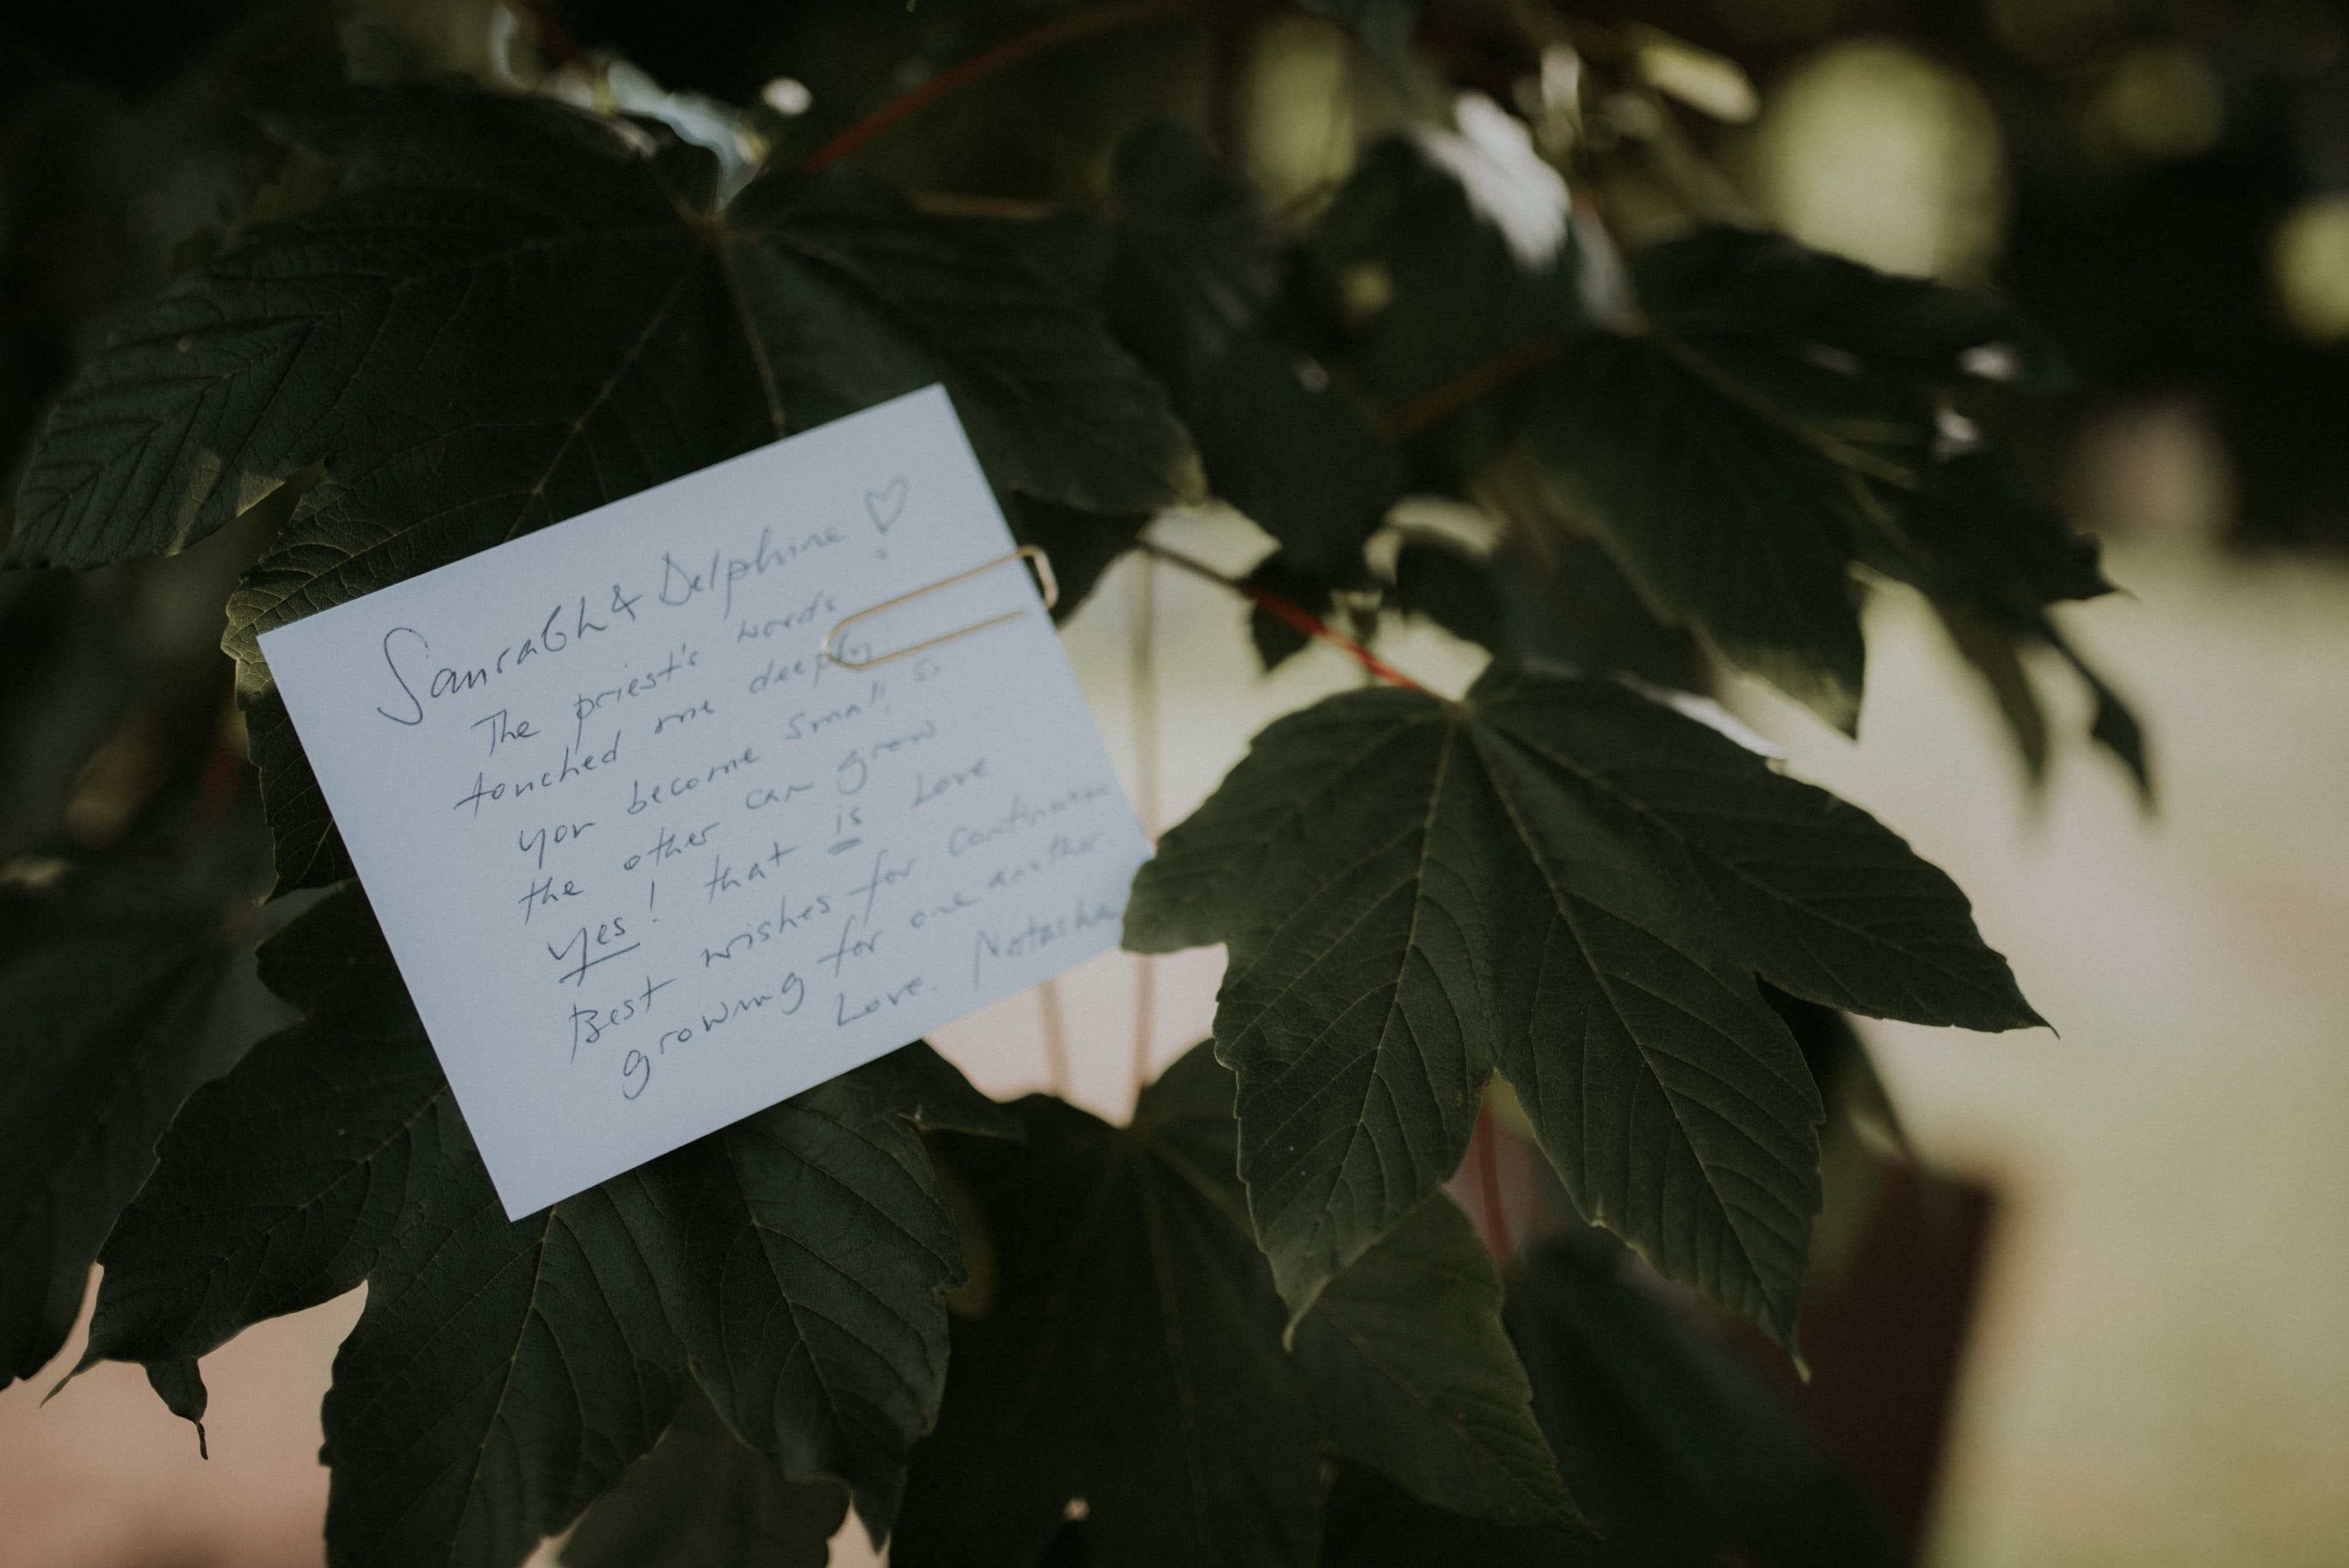 Saurabh & Delphine ♡
The priest's words
touched me deeply:
you become small so
the other can grow...
yes! that is Love
Best wishes for continuous
growing for one another
Love. Natasha